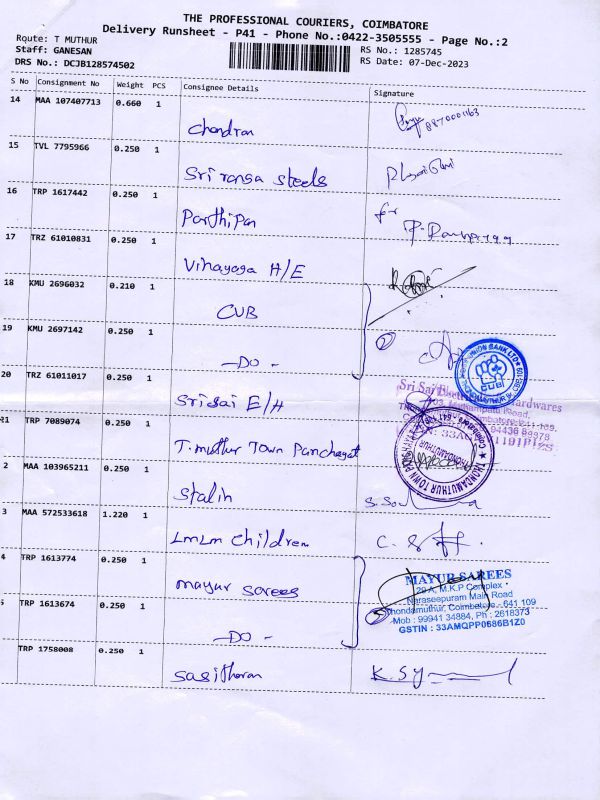 THE PROFESSIONAL COURIERS, COIMBATORE
Delivery Runsheet - P41 - Phone No.:0422-3505555 - Page No.:2
Route: T MUTHUR
RS No.: 1285745
Staff: GANESAN
RS Date: 07-Dec-2023
DRS No.: DCJB128574502
S No Consignment No Weight PCS Consignee Details Signature
14 MAA 107407713 0.660 1
Chandran 8870001163
15 TVL 7795966 0.250 1
Sri ranga steels
16 TRP 1617442 0.250 1
Parthipan for
17 TRZ 61010831 0.250 1
Vinayaga H/E
18 KMU 2696032 0.210 1
CUB
19 KMU 2697142 0.250 1
2
- DO -
CUB
20 TRZ 61011017 0.250 1
Sri Sai E/H
Sri Sai
21 TRP 7089074 0.250 1
T. muthur Town Panchayat
THONDAMUTHUR TOWN
2 MAA 103965211 0.250 1
Stalin
3 MAA 572533618 1.220 1
LmLm Children
4 TRP 1613774 0.250 1
mayur sarees
MAYUR SAREES
29 A, M.K.P Complex
Naraseepuram Main Road
Thondamuthur, Coimbatore - 641 109
Mob : 99941 34884, Ph : 2618373
GSTIN : 33AMQPP0686B1Z0
5 TRP 1613674 0.250 1
2
- DO -
TRP 1758008 0.250 1
Sasitharan